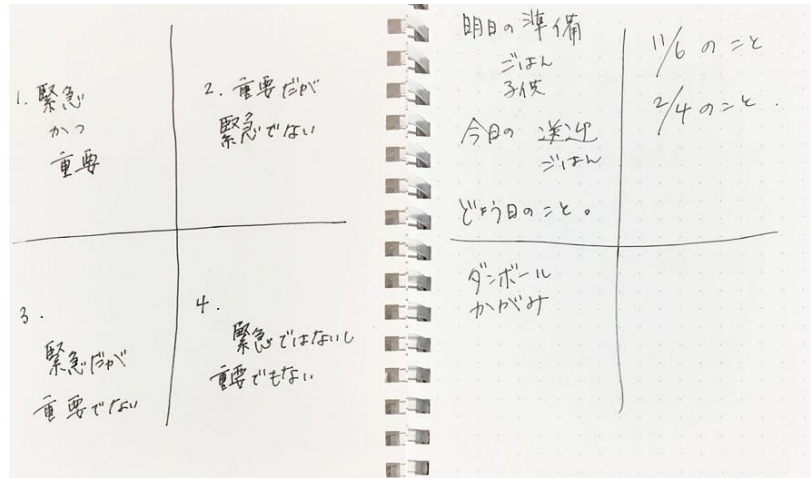 1. 緊急
かつ
重要
2. 重要だが
緊急でない
3.
緊急だが
重要でない
4.
緊急ではないし
重要でもない
明日の準備
ごはん
子供
今日の 送迎
ごはん
どよう日のこと。
11/6 のこと
2/4 のこと.
ダンボール
かがみ